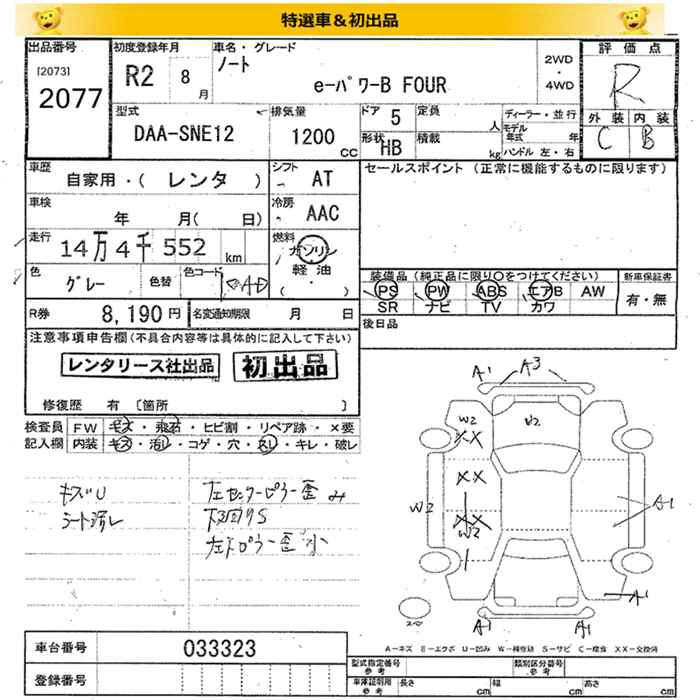 特選車＆初出品
出品番号
[2073]
2077
初度登録年月
R2 8月
車名・グレード
ノート
e-パワーB FOUR
2WD
・
4WD
評価点
R
外装 内装
C B
型式
DAA-SNE12
排気量
1200
CC
ドア 5
形状 HB
定員
人
積載
kg
ディーラー・並行
モデル年式 年
ハンドル 左・右
車歴
自家用・( レンタ )
シフト
AT
セールスポイント (正常に機能するものに限ります)
車検
年 月( 日)
冷房
AAC
走行
14万4千552
km
燃料
ガソリン
軽油
( ・ )
色
グレー
色替
色コード
KAD
装備品(純正品に限り○をつけてください)
PS PW ABS エアB AW
SR ナビ TV カワ
新車保証書
有・無
R券
8,190円
名変通知期限
月 日
後日品
注意事項申告欄(不具合内容等は具体的に記入して下さい)
レンタリース社出品
初出品
修復歴 有 〔箇所 〕
検査員
記入欄
FW キズ・飛石・ヒビ割・リペア跡・×要
内装 キズ・汚レ・コゲ・穴・スレ・キレ・破レ
キズU
シート汚レ
左センターピラー歪み
下回りS
A1 A3
W2
XX
XX
W2
XX
W2
A1
A1
A1 A1
A－キズ E－エクボ U－凹み W－補修跡 S－サビ C－腐食 XX－交換済
車台番号
033323
登録番号
型式指定番号
参考
類別区分番号
参考
車庫証明用
参考
長さ
cm
幅
cm
高さ
cm